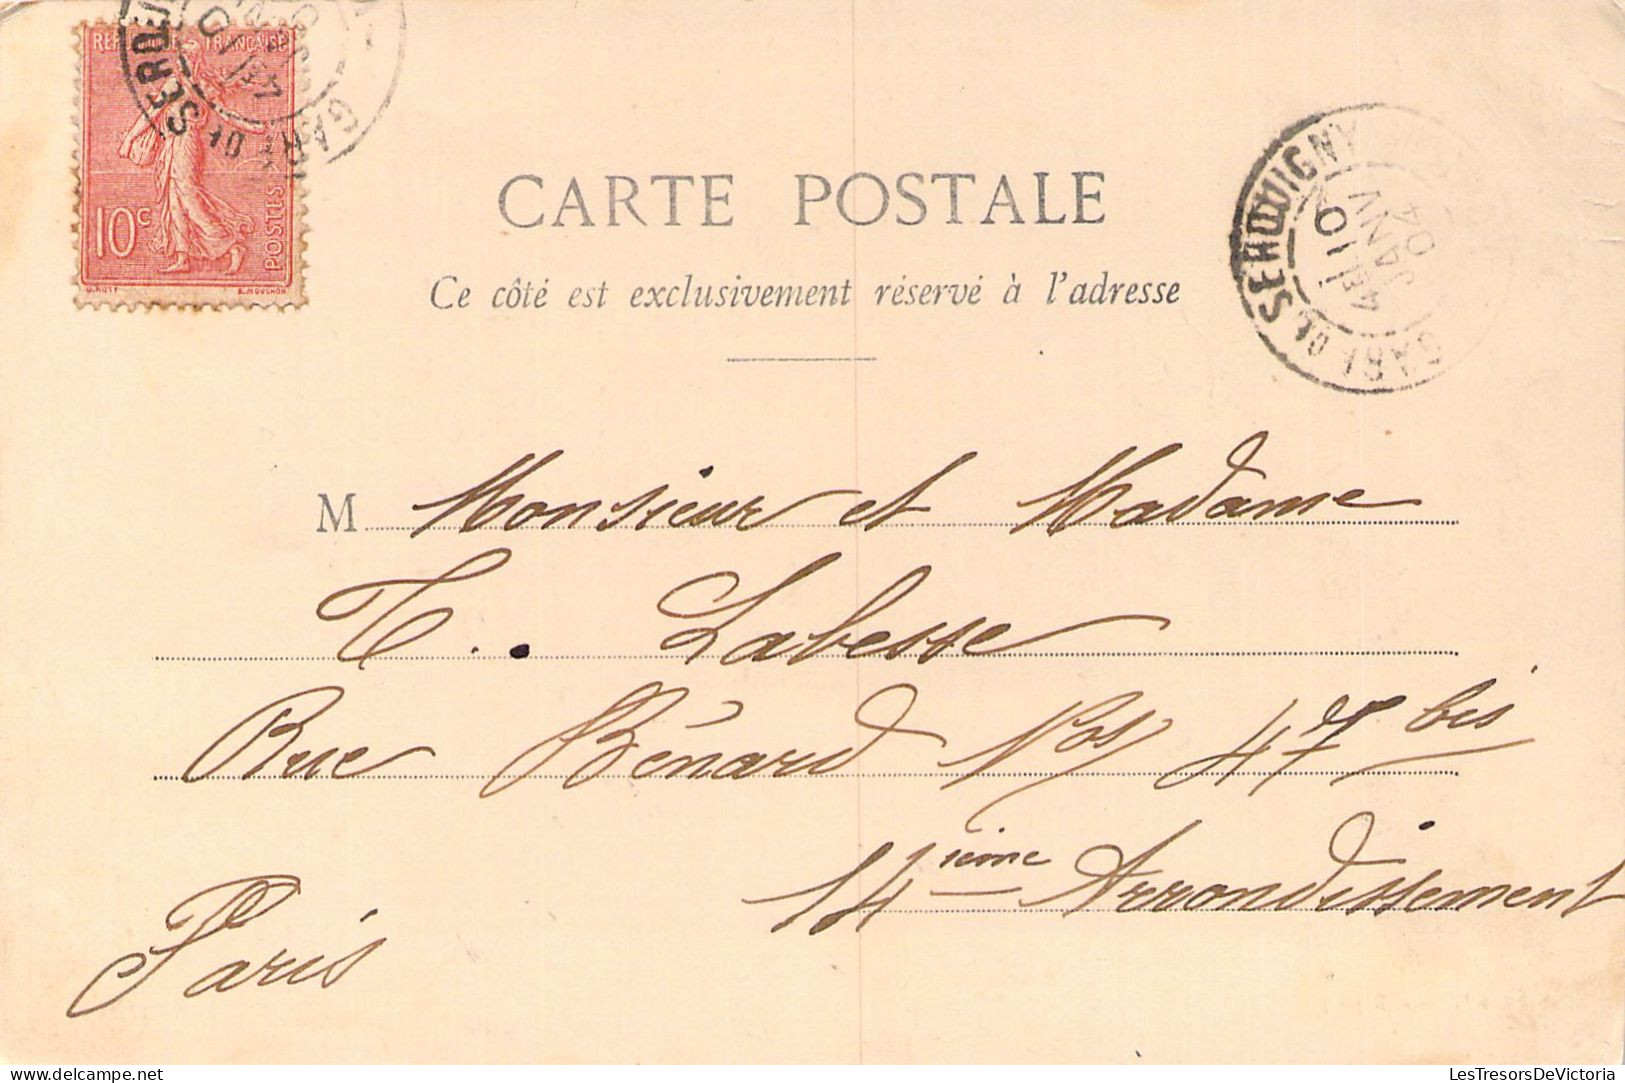 REPUBLIQUE FRANÇAISE
10c
POSTES
O.ROTY
E.MOUCHON
CARTE POSTALE
Ce côté est exclusivement réservé à l'adresse
GARE DE SERQUIGNY
4E 10
JANV
04
M Monsieur et Madame
T. Labesse
Rue Bénard Nos 47 bis
14 ième Arrondissement
Paris
delcampe.net
LesTresorsDeVictoria